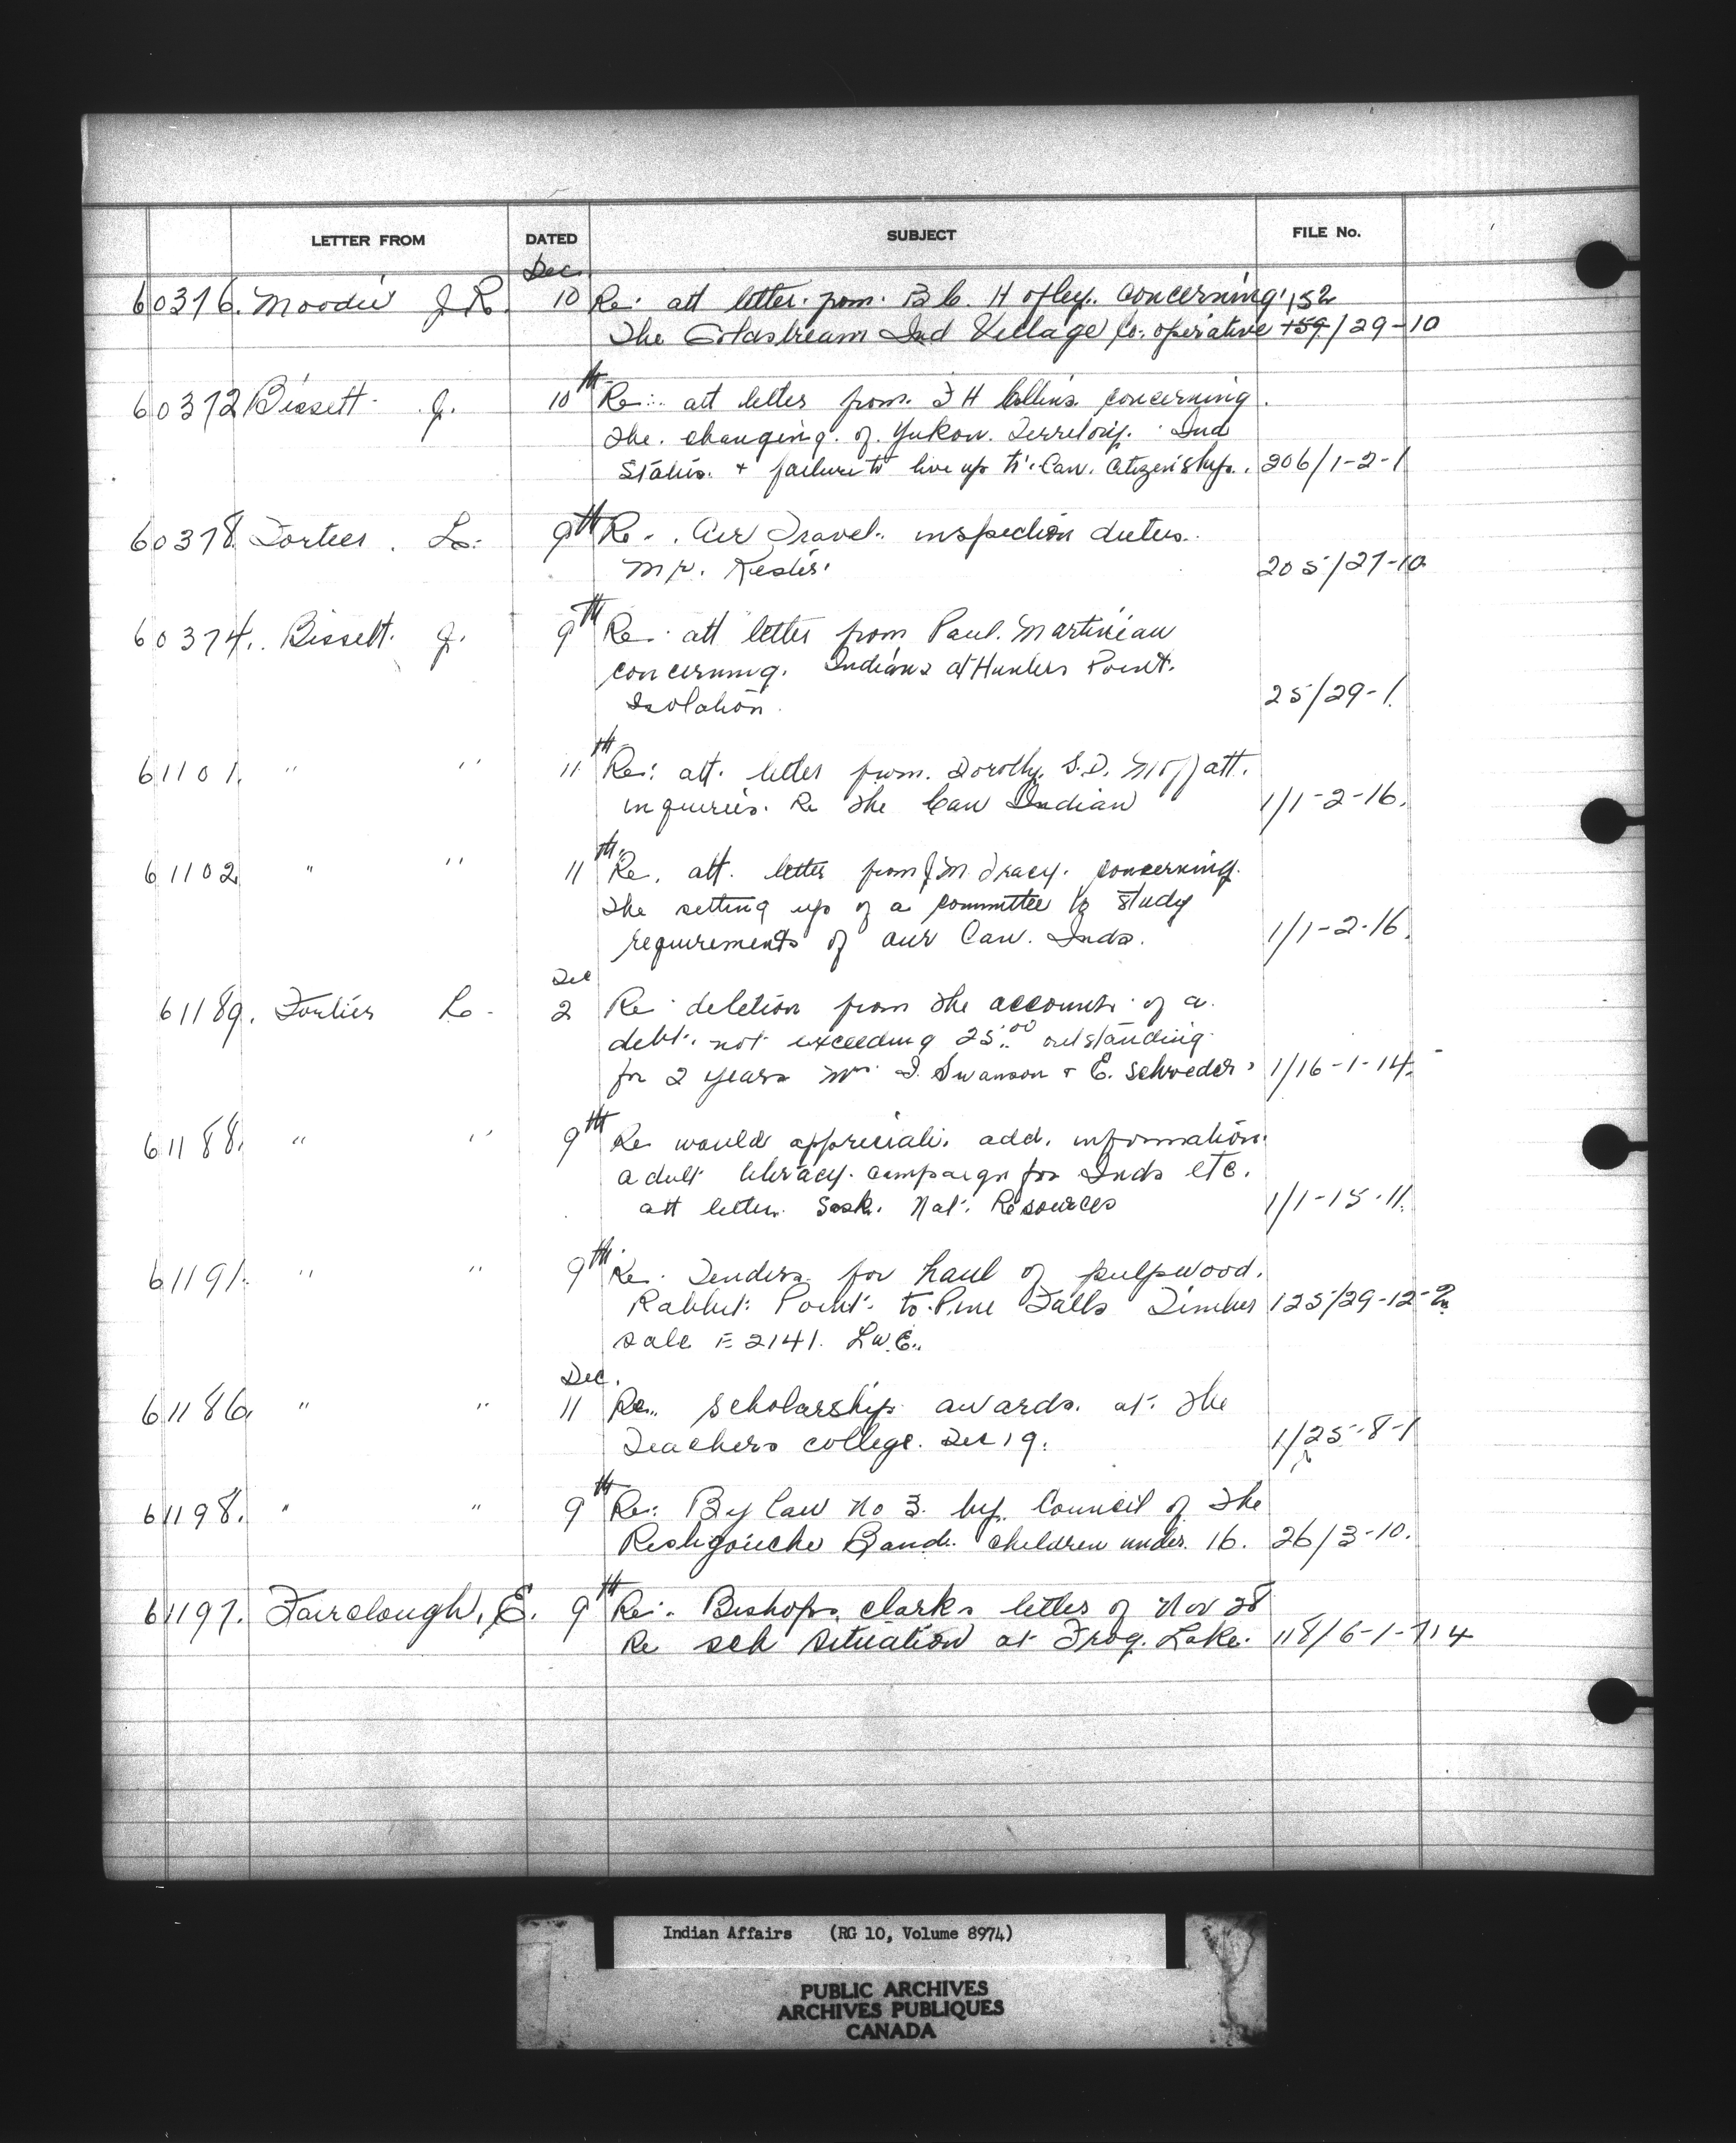 LETTER FROM DATED SUBJECT FILE No.
Dec.
60376. Moodie J.R. 10 Re: att letter from B.C. H concerning 152
The Ind Village Co-operative 159/29-10
60372 Bissett J. 10th Re: att letter from F H Collins concerning
the changing of Yukon Territory Ind
Status + failure to live up to Can. Citizenship. 206/1-2-1
60378. Fortier L. 9th Re. Air Travel inspection duties
Mr. Kester 205/27-10
60374. Bissett J. 9th Re att letter from Paul Martineau
concerning Indians at Hunters Point
Isolation 25/29-1
61101. " " 11th Re: att. letter from Dorothy S.D. Moffatt.
inquiries Re the Can Indian 1/1-2-16.
61102 " " 11th Re. att. letter from J M Tracy. concerning
the setting up of a committee to study
requirements of our Can. Inds. 1/1-2-16.
Dec
61189. Fortier L. 2 Re deletion from the accounts of a
debt. not exceeding 25.00 outstanding
for 2 years Mrs I. Swanson + E. Schroeder 1/16-1-14
61188. " " 9th Re would appreciate add. information
adult literacy campaign for Inds etc.
att letter Sask. Nat. Resources 1/1-15-11.
61191. " " 9th Re. Tenders for haul of pulpwood.
Rabbit Point to Pine Falls Timber 125/29-12-2
sale E 2141. L.W.E.
Dec.
61186 " " 11 Re. scholarship awards at the
Teachers college. Dec 19. 1/25-8-1
61198. " " 9th Re: By law no 3. by Council of the
Restigouche Band. children under 16. 26/3-10.
61197. Fairclough, E. 9th Re: Bishops Clarks letter of Nov 28
Re sch situation at Frog Lake. 118/6-1-714
Indian Affairs (RG 10, Volume 8974)
PUBLIC ARCHIVES
ARCHIVES PUBLIQUES
CANADA